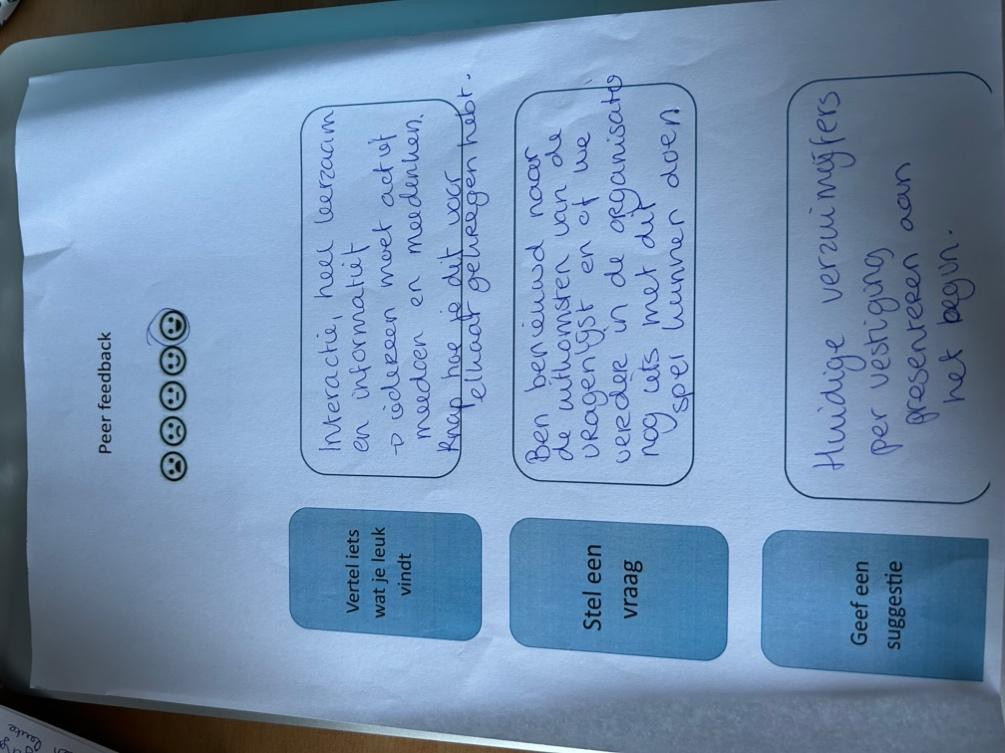 Peer feedback
Vertel iets
wat je leuk
vindt
Interactie, heel leerzaam
en informatief
→ iedereen moet actief
meedoen en meedenken.
Knap hoe je dit voor
elkaar gekregen hebt.
Stel een
vraag
Ben benieuwd naar
de uitkomsten van de
vragenlijst en of we
verder in de organisatie
nog iets met dit
spel kunnen doen.
Geef een
suggestie
Huidige verzuimcijfers
per vestiging
presenteren aan
het begin.